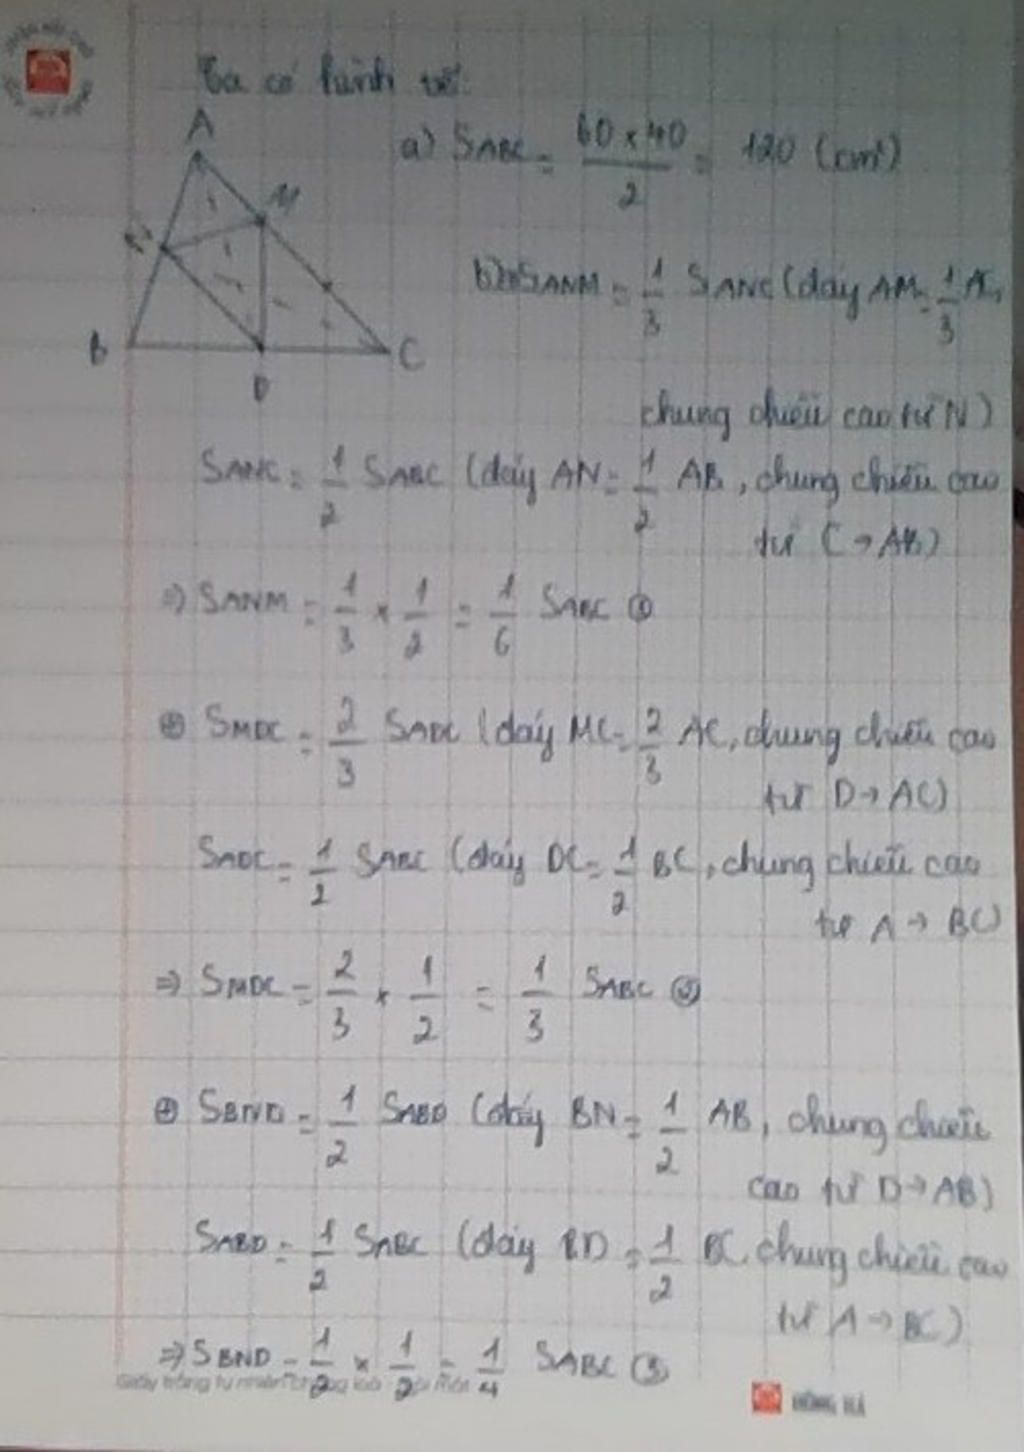 Ta có hình vẽ:
A
a) SABC = 60 x 40 / 2 = 120 (cm²)
M
N
b) ⊕ SANM = 1/3 SANC (đáy AM = 1/3 AC,
B
C
D
chung chiều cao từ N)
SANC = 1/2 SABC (đáy AN = 1/2 AB, chung chiều cao
từ C → AB)
=> SANM = 1/3 x 1/2 = 1/6 SABC ①
⊕ SMDC = 2/3 SADC (đáy MC = 2/3 AC, chung chiều cao
từ D → AC)
SADC = 1/2 SABC (đáy DC = 1/2 BC, chung chiều cao
từ A → BC)
=> SMDC = 2/3 x 1/2 = 1/3 SABC ②
⊕ SBND = 1/2 SABD (đáy BN = 1/2 AB, chung chiều
cao từ D → AB)
SABD = 1/2 SABC (đáy BD = 1/2 BC, chung chiều cao
từ A → BC)
=> SBND = 1/2 x 1/2 = 1/4 SABC ③
Giấy trắng tự nhiên
HỒNG HÀ